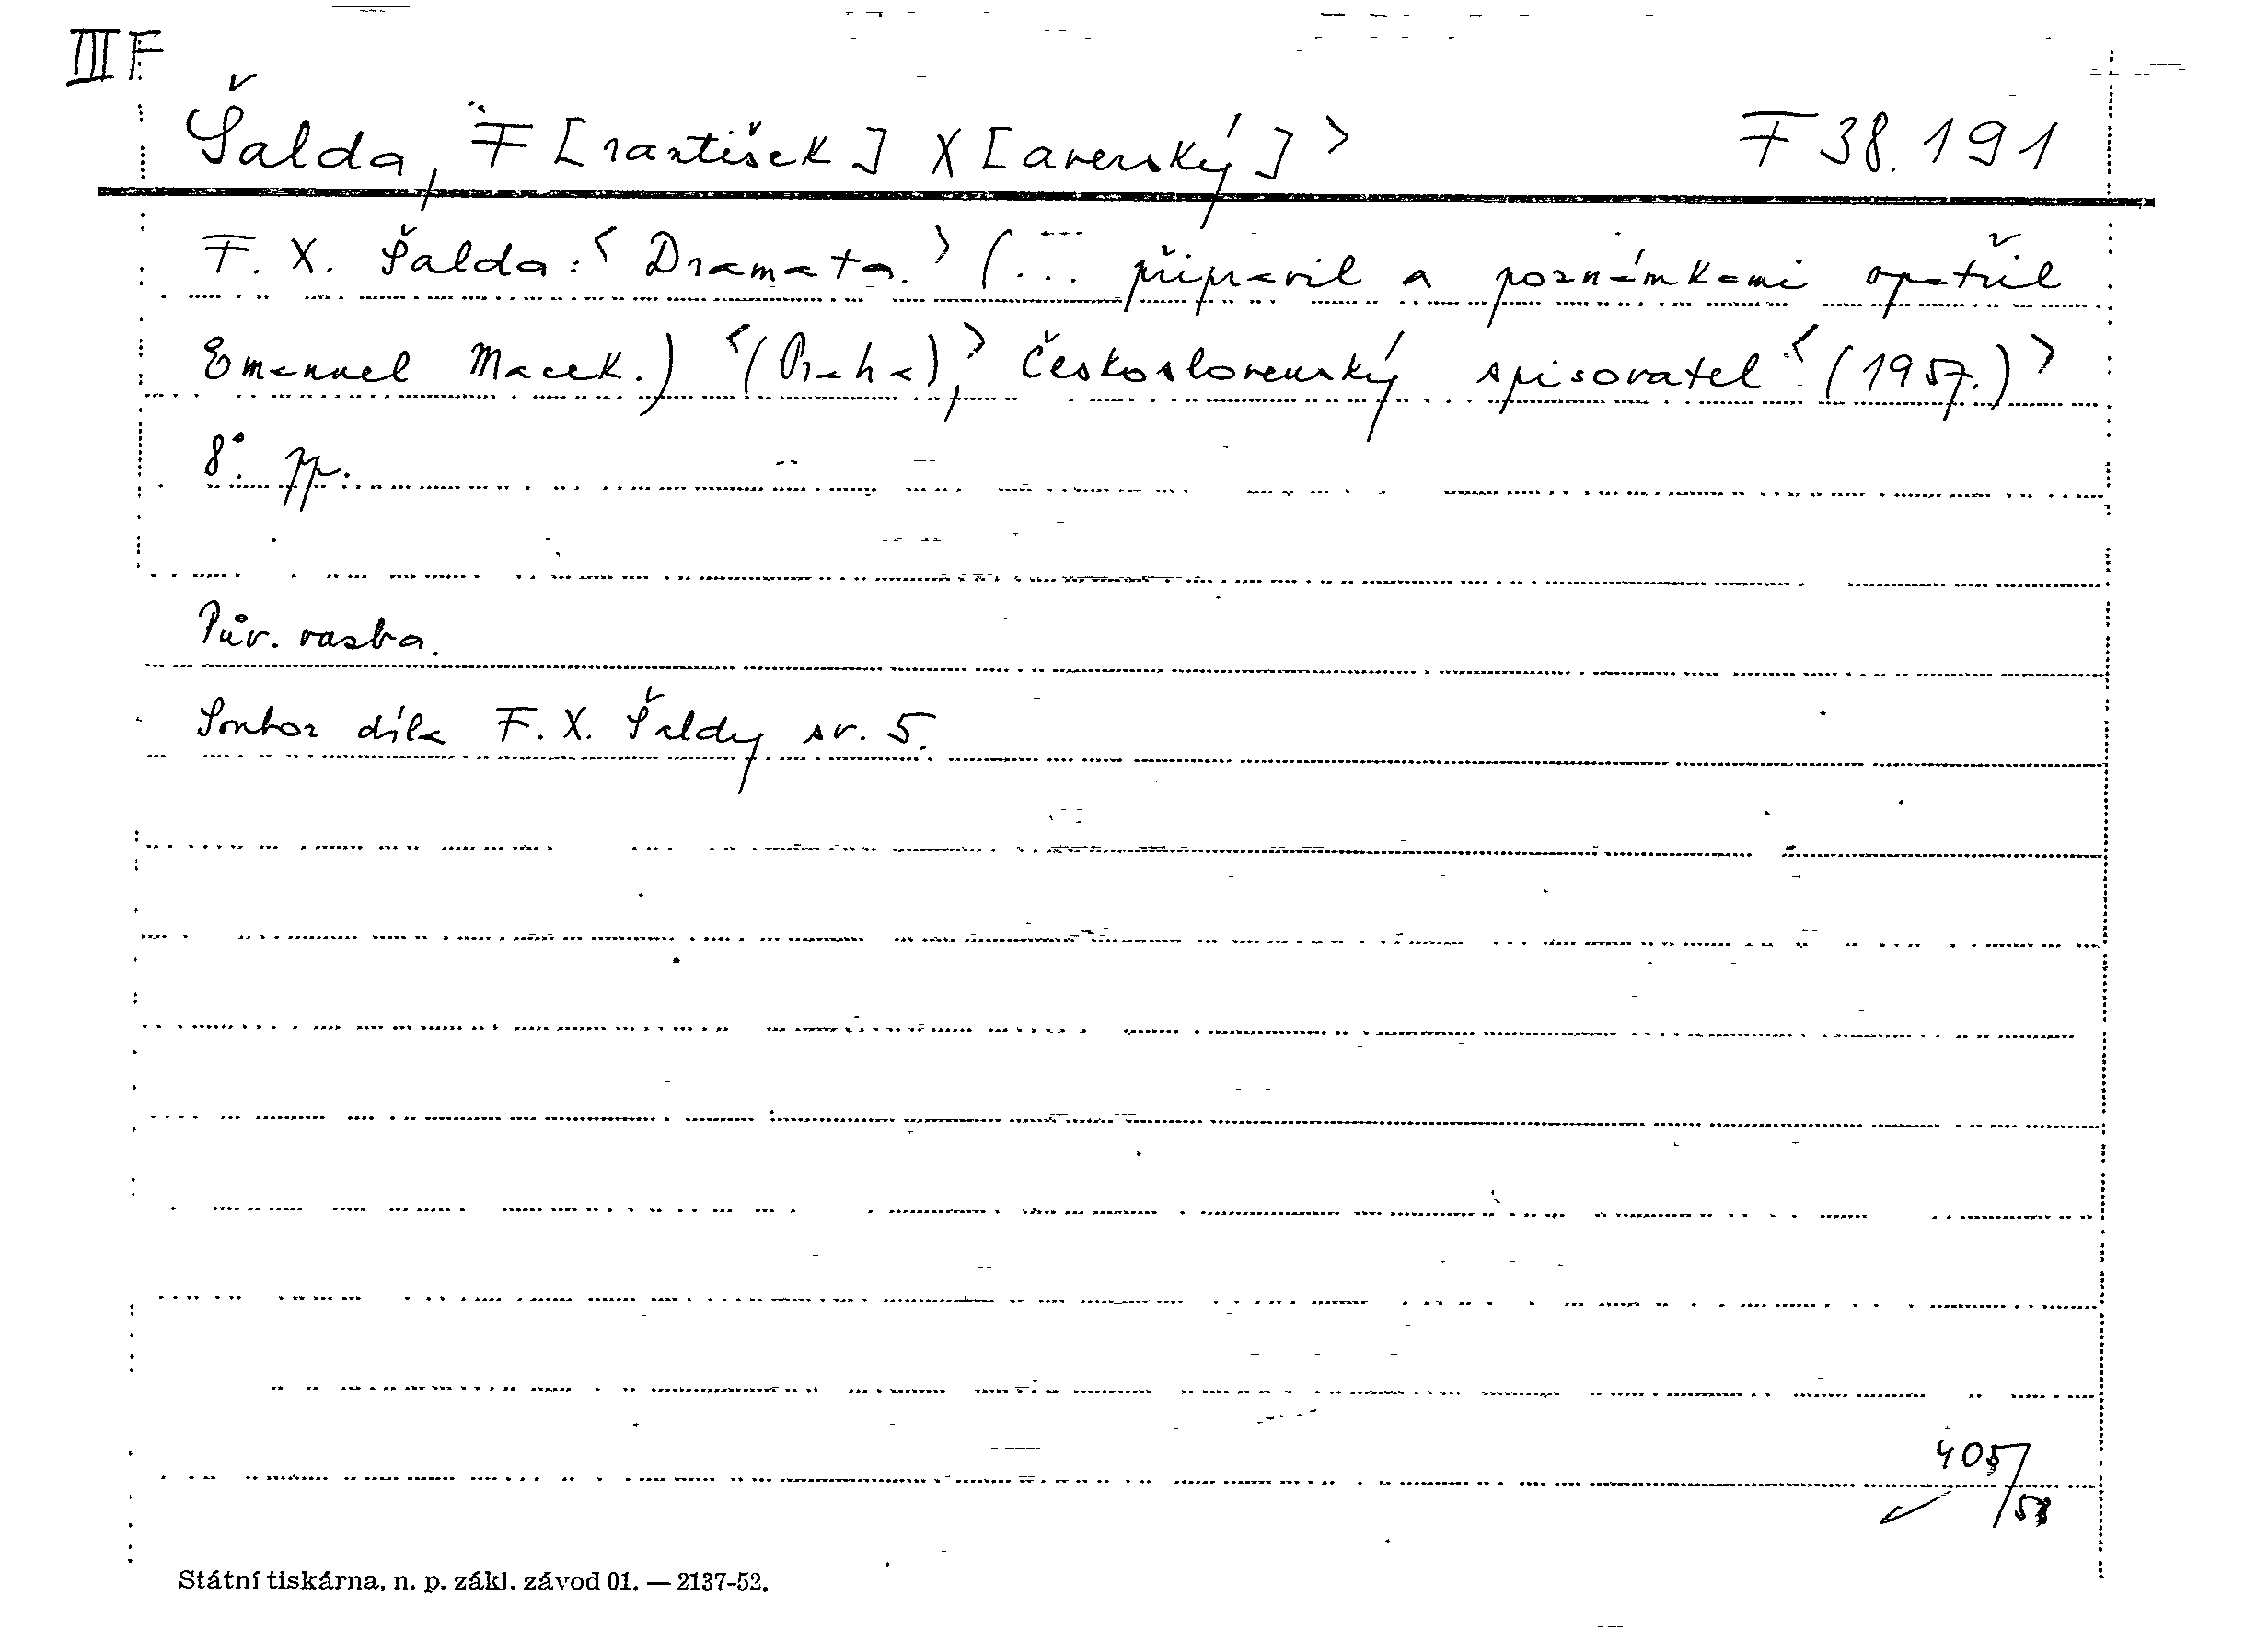 III F
Šalda, F[rantišek] X[averský]> F 38.191
F. X. Šalda: <Dramata.> (... připravil a poznámkami opatřil
Emanuel Macek.) <(Praha),> Československý spisovatel <(1957.)>
8°. pp.
Pův. vazba.
Soubor díla F. X. Šaldy sv. 5.
405/58
Státní tiskárna, n. p. zákl. závod 01. — 2137-52.